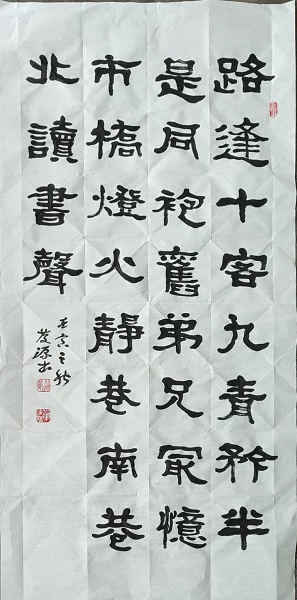 路逢十客九青衿半
是同袍舊弟兄冣憶
市橋燈火靜巷南巷
北讀書聲
壬寅之秋